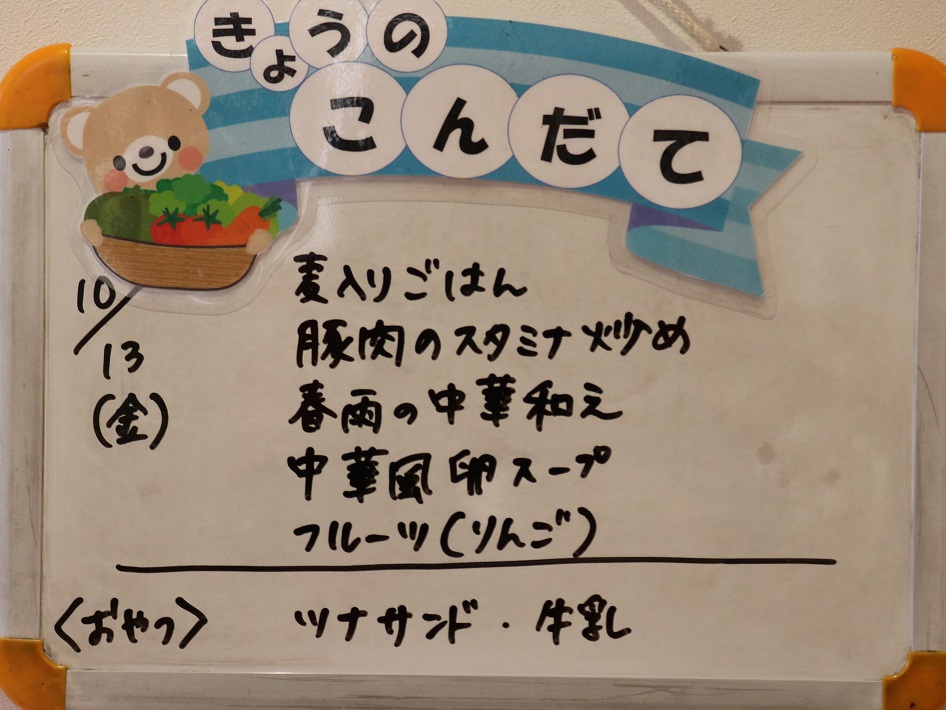 きょうの
こんだて
10/13
(金)
麦入りごはん
豚肉のスタミナ炒め
春雨の中華和え
中華風卵スープ
フルーツ(りんご)
<おやつ> ツナサンド・牛乳